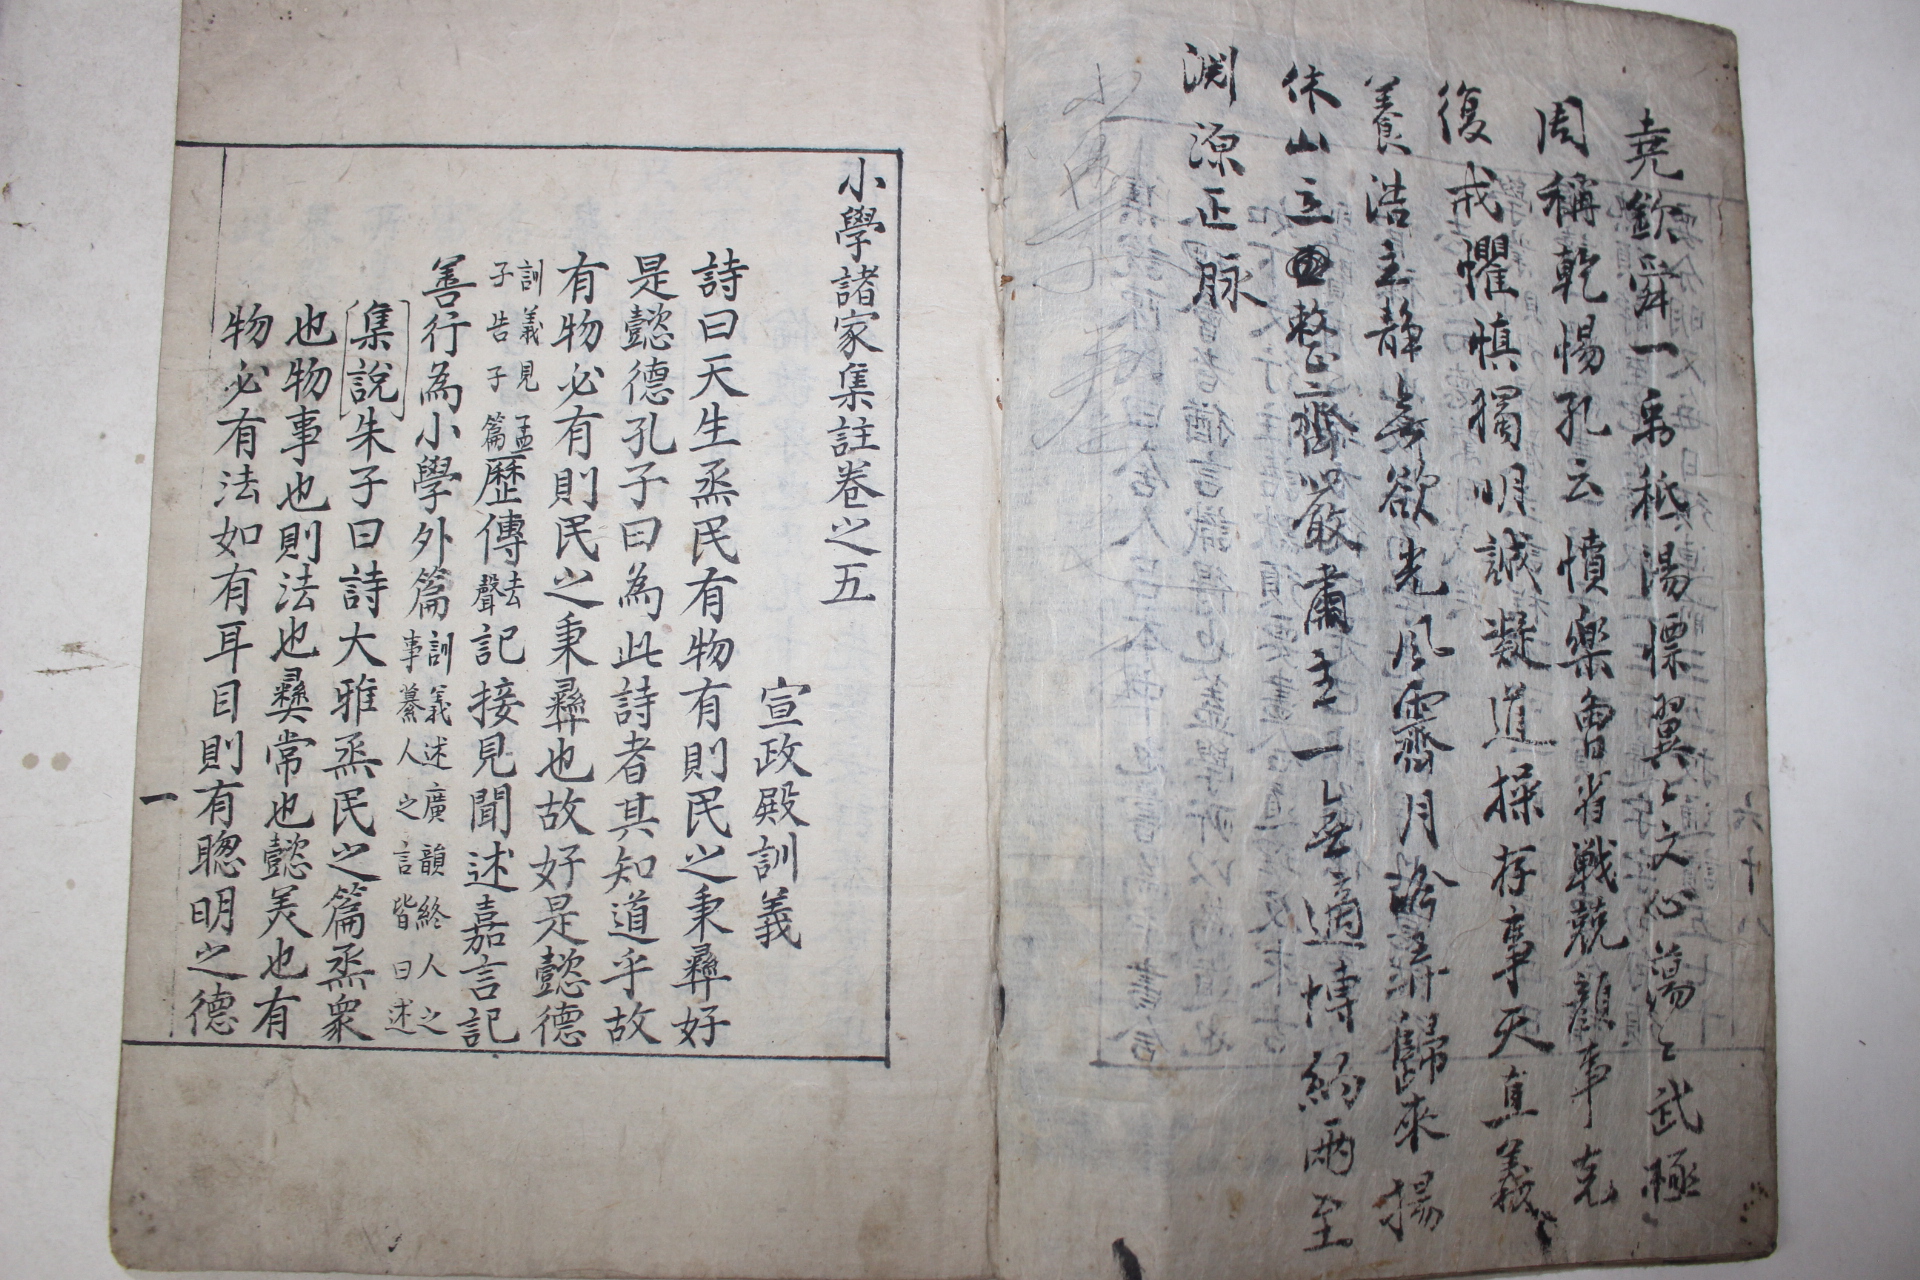 堯欽舜一禹祗湯慄翼〻文心蕩〻武極
周稱乾惕孔云憤樂曾省戰兢顏事克
復戒懼慎獨明誠凝道操存事天直義
養浩主靜無欲光風霽月詠歸來揚
休山立整齊嚴肅主一無適博約兩至
淵源正脉
小學諸家集註卷之五
宣政殿訓義
詩曰天生烝民有物有則民之秉彝好
是懿德孔子曰為此詩者其知道乎故
有物必有則民之秉彝也故好是懿德
訓義見孟子告子篇歷傳去聲記接見聞述嘉言記
善行為小學外篇訓義述廣韻終人之事纂人之言皆曰述
集說朱子曰詩大雅烝民之篇烝衆
也物事也則法也彝常也懿美也有
物必有法如有耳目則有聰明之德
一